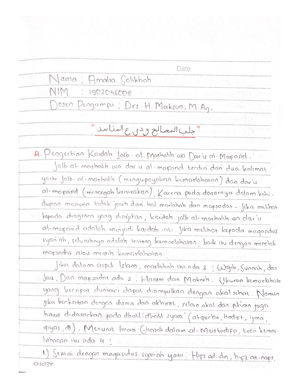 Date
Nama : Amalia Solikhah
NIM : 1902046008
Dosen Pengampu : Drs. H. Maksun, M. Ag.
"جلب المصالح ودرء المفاسد"
A. Pengertian Kaidah Jalb al-Mashalih wa Dar'u al-Mafasid.
Jalb al-mashalih wa dar'u al-mafasid terdiri dari dua kalimat
yaitu jalb al-mashalih (mengupayakan kemaslahatan) dan dar'u
al-mafasid (mencegah kerusakan). Karena pada dasarnya dalam kehi-
dupan manusia tidak jauh dari hal maslahah dan mafsadah. Jika melihat
kepada diagram yang diajukan, kaidah jalb al-mashalih wa dar'u
al-mafasid adalah menjadi kaidah inti. Jika melihat kepada maqashid
syariah, seluruhnya adalah tentang kemaslahatan, baik itu dengan menolak
mafsadat atau meraih kemaslahatan.
Jika dalam aspek Islam, maslahah itu ada 3 : Wajib, Sunnah, dan
Jaiz. Dan mafsadah ada 2 : Haram dan Makruh. Ukuran kemaslahatan
yang bersifat duniawi dapat disimpulkan dengan akal sehat. Namun
jika berkaitan dengan dunia dan akhirat, selain akal dan pikiran juga
harus didasarkan pada dhalil-dhalil syara' (alqur'an, hadist, ijma
qiyas, dll). Menurut Imam Ghazali dalam al-Mustashfa, teori kemas-
lahatan itu ada 4 :
1) Sesuai dengan maqashid syariah yaitu : Hifz ad-din, hifz an-nafs,